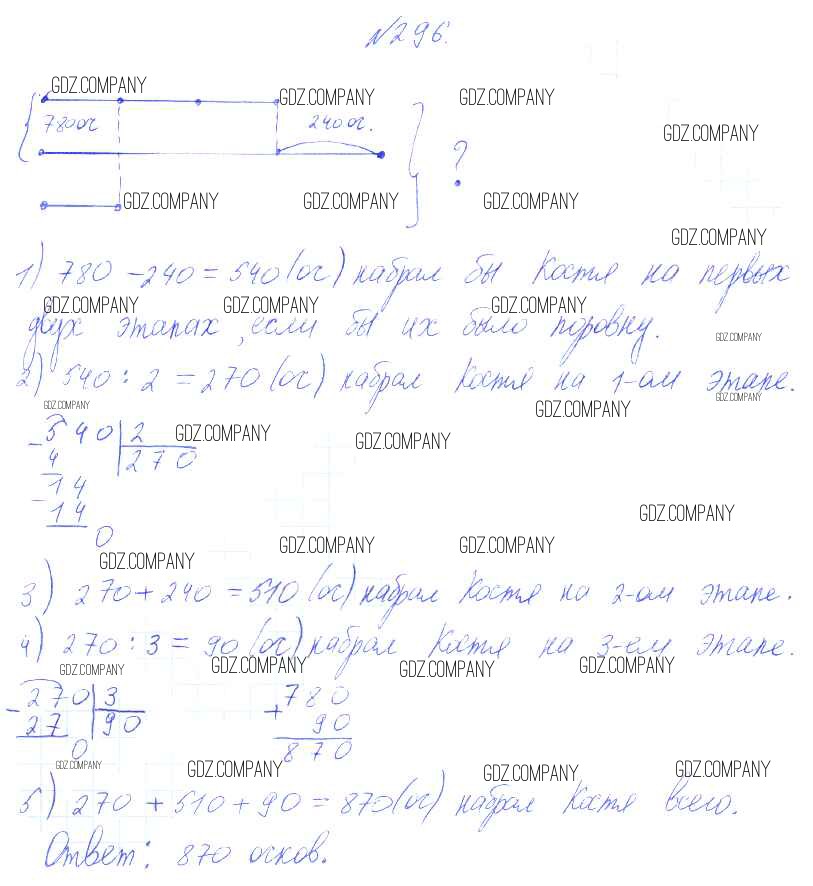 №296.
GDZ.COMPANY
GDZ.COMPANY GDZ.COMPANY
780 оч. 240 оч.
GDZ.COMPANY
?
GDZ.COMPANY GDZ.COMPANY GDZ.COMPANY
GDZ.COMPANY
1) 780 - 240 = 540 (оч) набрал бы Костя на первых
GDZ.COMPANY GDZ.COMPANY GDZ.COMPANY
двух этапах, если бы их было поровну.
GDZ.COMPANY
2) 540 : 2 = 270 (оч) набрал Костя на 1-ом этапе.
GDZ.COMPANY GDZ.COMPANY GDZ.COMPANY
- 540 | 2 GDZ.COMPANY GDZ.COMPANY
4 270
- 14
14
GDZ.COMPANY
0
GDZ.COMPANY GDZ.COMPANY GDZ.COMPANY
3) 270 + 240 = 510 (оч) набрал Костя на 2-ом этапе.
4) 270 : 3 = 90 (оч) набрал Костя на 3-ем этапе.
GDZ.COMPANY GDZ.COMPANY GDZ.COMPANY GDZ.COMPANY
- 270 | 3 + 780
27 90 90
0 870
GDZ.COMPANY GDZ.COMPANY GDZ.COMPANY GDZ.COMPANY
5) 270 + 510 + 90 = 870 (оч) набрал Костя всего.
Ответ: 870 очков.